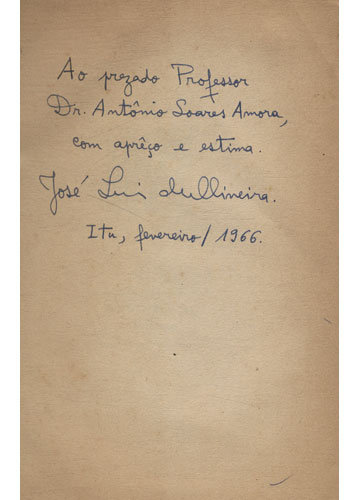 Ao prezado Professor
Dr. Antônio Soares Amora,
com aprêço e estima.
José Luis
Itu, fevereiro/1966.